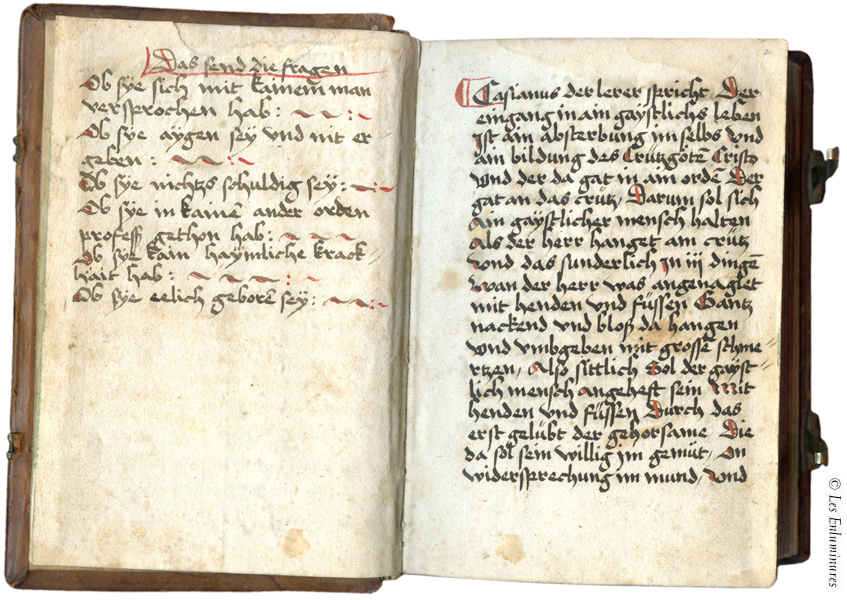 Das send die fragen
Ob sye sich mit kainem man
versprochen hab :
Ob sye aygen sey vnd nit er-
geben :
Ob sye nichtzs schuldig sey :
Ob sye in kainē ander orden
profess gethon hab :
Ob sye kain haymliche kranck-
hait hab :
Ob sye eelich geborē sey :
Casianus der lerer spricht / Der
eingang in ain gaystlichs leben
ist ain absterbung im selbs vnd
ain bildung des Crützgotē Cristo
vnd der da gat in ain ordē Der
gat an das crütz / Darum sol sich
ain gaystlicher mensch halten
als der herr hanget am crütz
vnd das sunderlich in iij dingē
wan der herr was angenaglet
mit henden vnd füssen Gantz
nackend vnd bloß da hangen
vnd vmbgeben mit grossē schme-
rtzen / Also sittlich Sol der gayst
lich mensch angeheft sein Mit
henden vnd füssen Durch das
erst gelübt der gehorsame / Die
da sol sein willig im gemüt / On
widersprechung im mund / vnd
© Les Enluminures